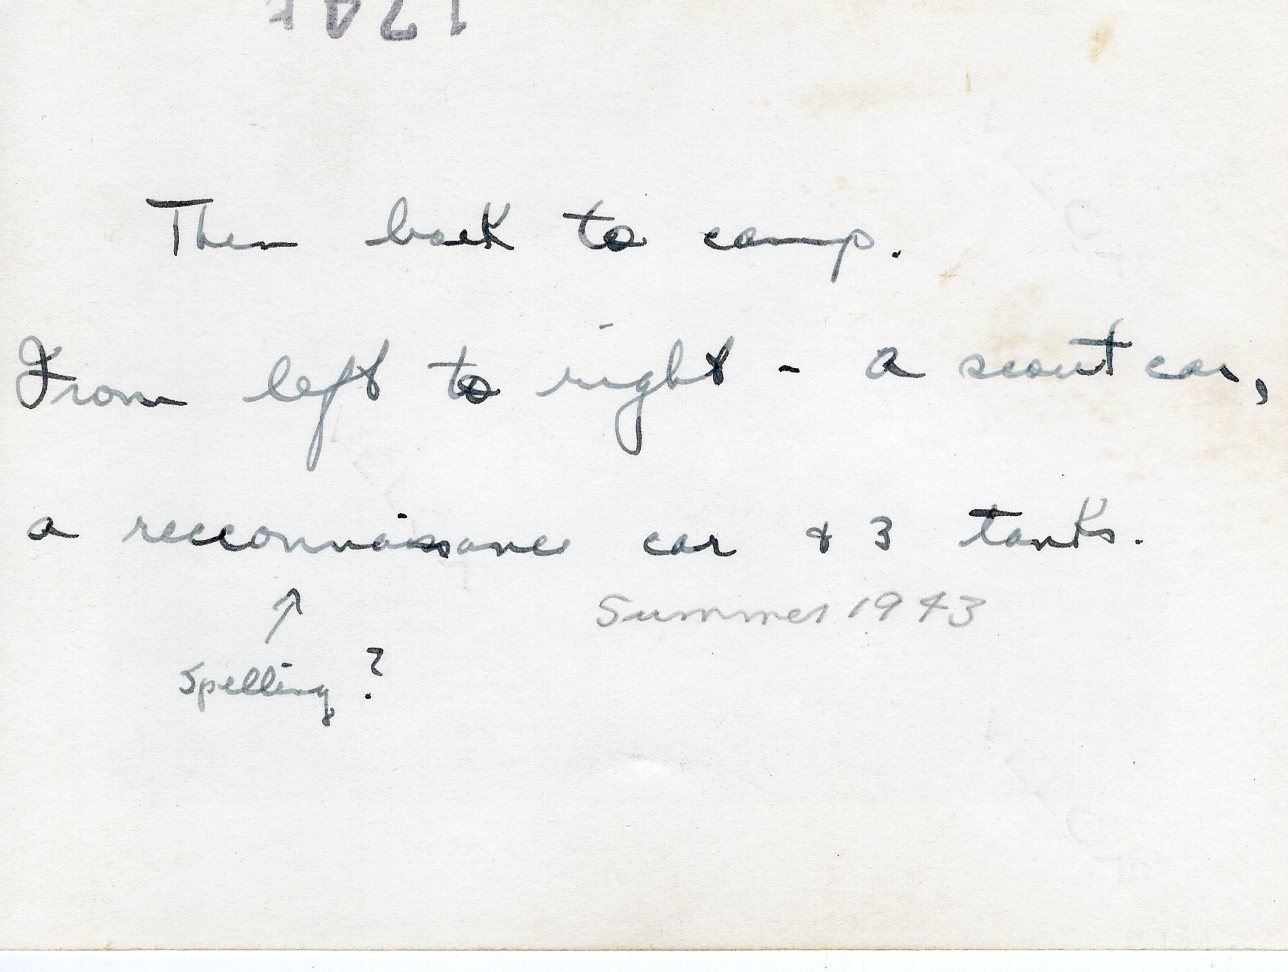 Then back to camp.
From left to right - a scout car,
a recconnaissance car & 3 tanks.
Summer 1943
↑
Spelling?